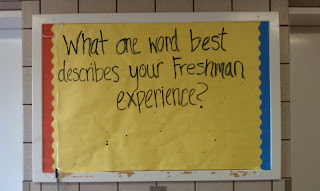 What one word best
describes your Freshman
experience?